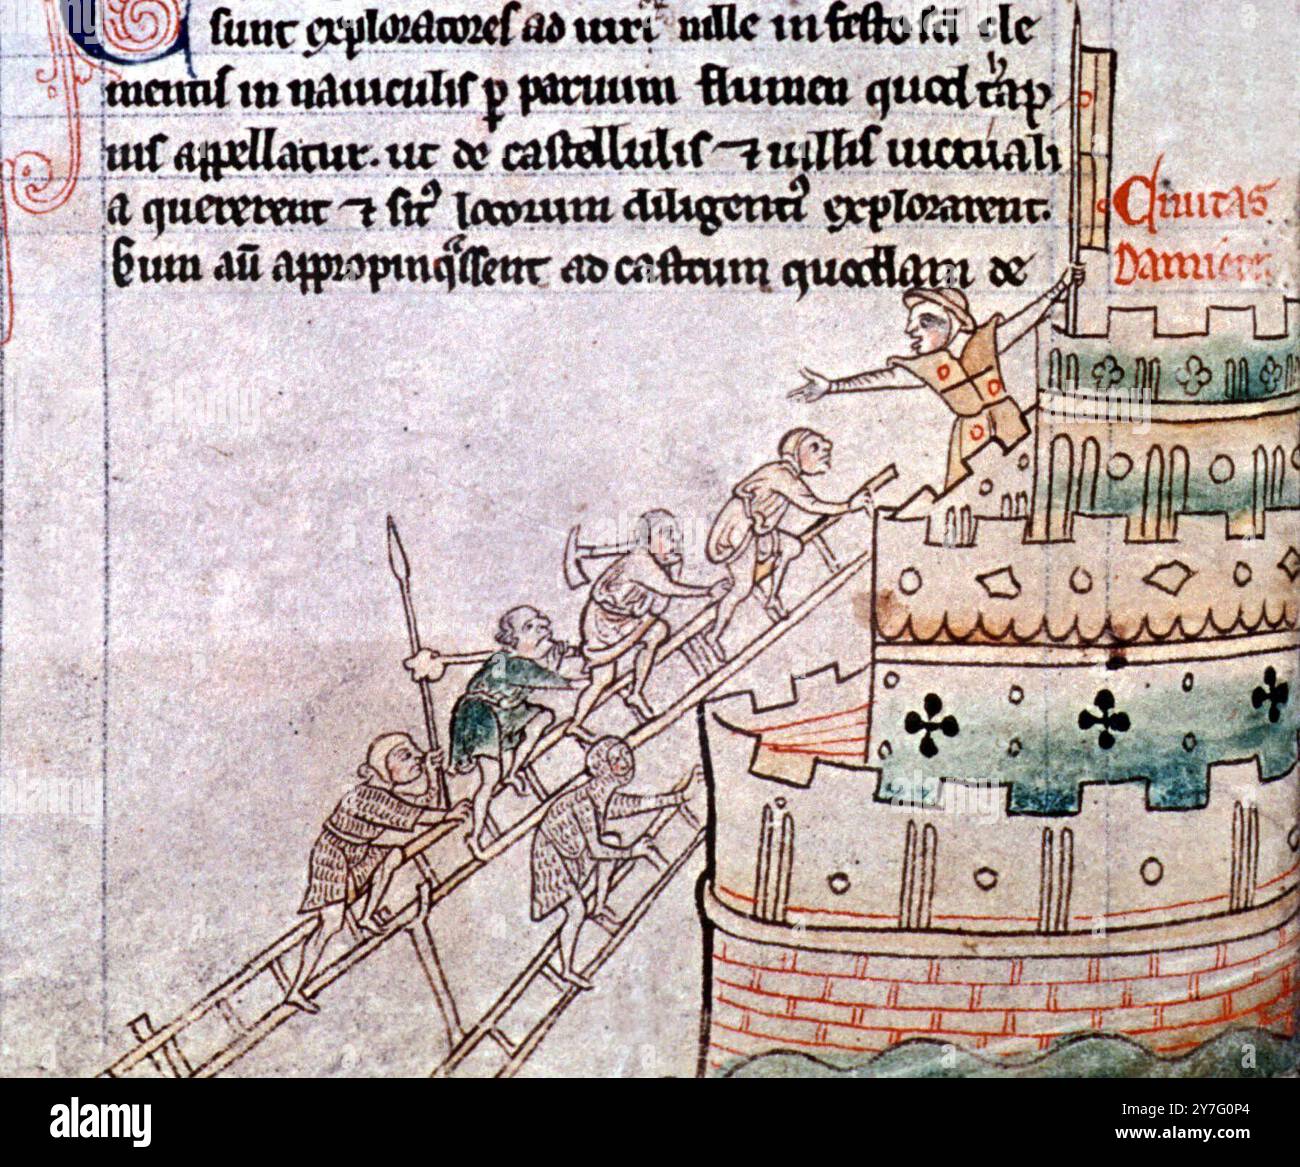 sunt exploratores ad mille in festo sci cle
mentis in nauiculis p paruum flumen quod
nis appellatur. ut de castellulis ⁊ uillis uictuali
a quererent ⁊ sitꝰ locorum diligentiꝰ explorarent.
Cum aū appropinqͣssent ad castrum quoddam de
Ciuitas
Damiete
alamy
Image ID: 2Y7G0P4
www.alamy.com